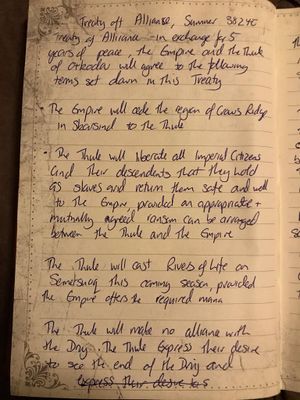 Treaty of Alliance, Summer 382YE
Treaty of Alliance - in exchange for 5
years of peace, the Empire and the Thule
of Otkodov will agree to the following
terms set down in this Treaty
• The Empire will cede the region of Crows Ridge
in Skarsind to the Thule
• The Thule will liberate all Imperial Citizens
and their descendents that they hold
as slaves and return them safe and well
to the Empire, provided an appropriate +
mutually agreed ransom can be arranged
between the Thule and the Empire
The Thule will cast Rivers of Life on
Semmerlak this coming season, provided
the Empire offers the required mana
The Thule will make no alliance with
the Druj. The Thule Express their desire
to see the end of the Druj and
express their desire